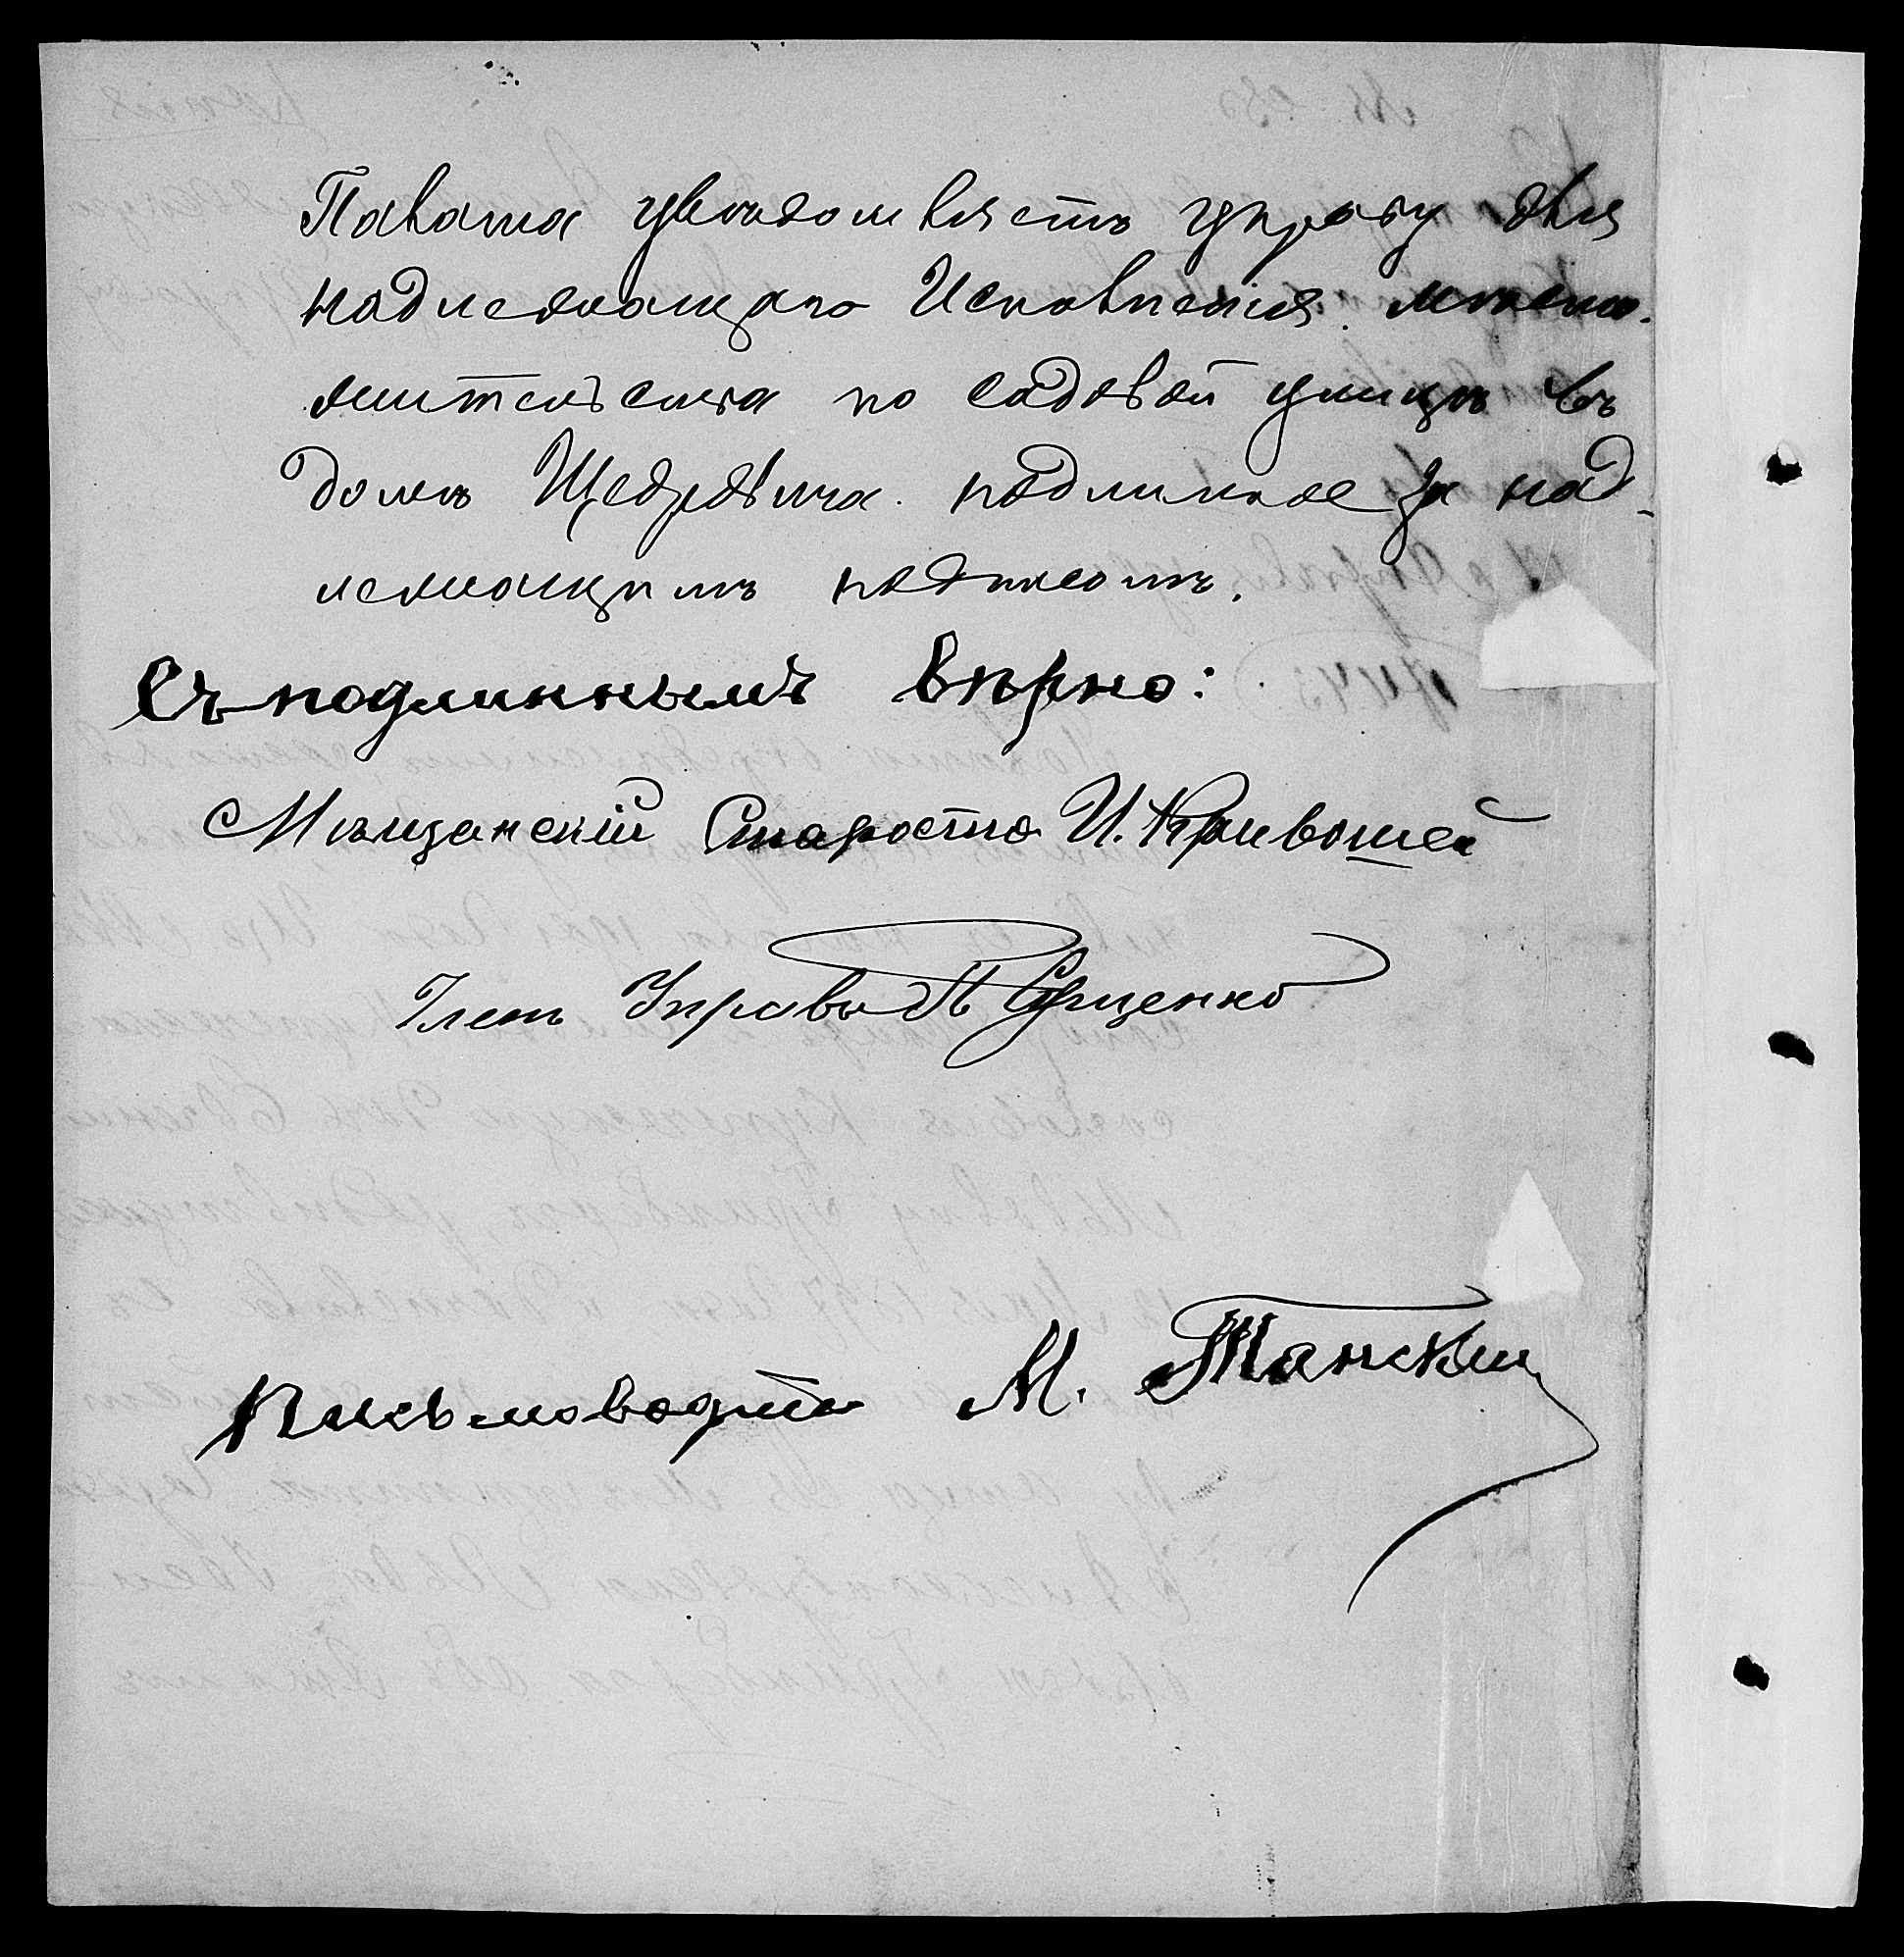 Палата увѣдомляетъ управу для
надлежащаго Исполненія.
жительства по садовой улицѣ въ
домѣ Щедровича. подлинное за над-
лежащимъ подписомъ.
Съ подлиннымъ вѣрно:
Мѣщанскій Староста И. Кривошея
Членъ Управы
Письмоводитель М. Танскій